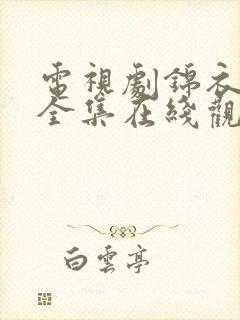 電視劇錦衣
全集在綫觀
白雲亭